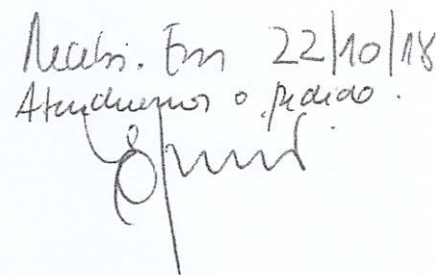 Recebi. Em 22/10/18
Atendemos o pedido.